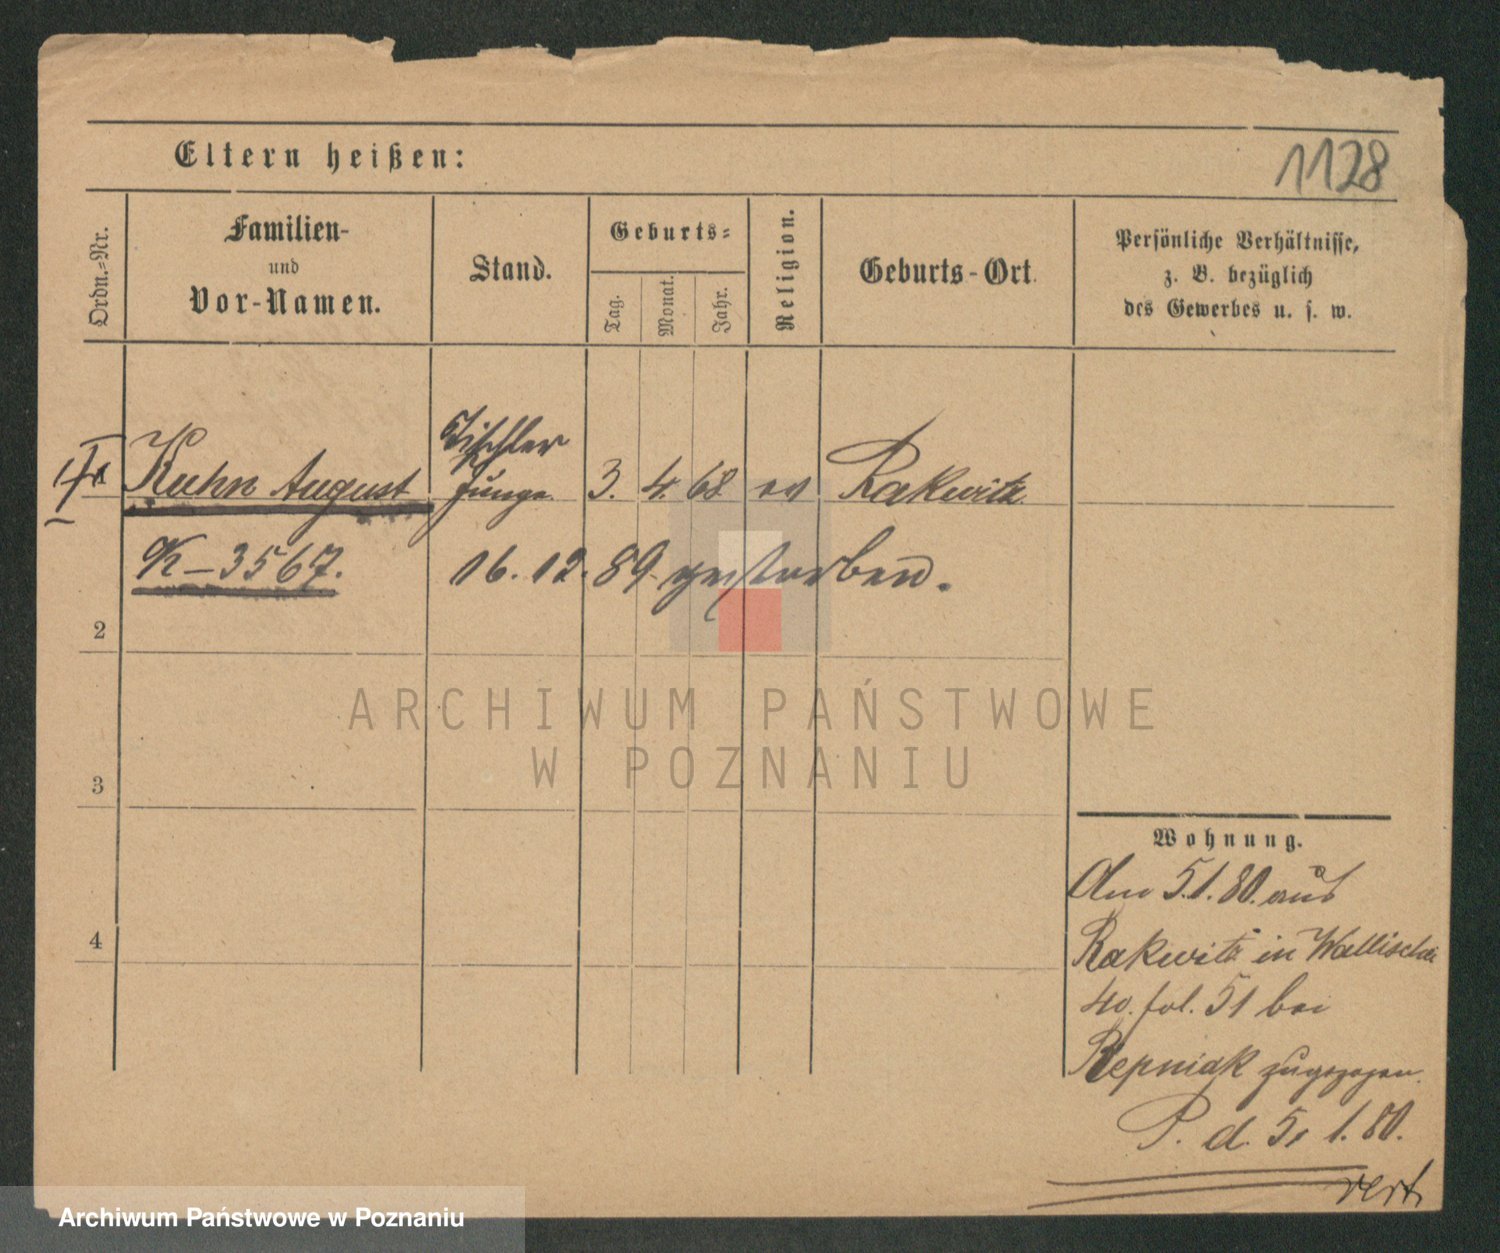 Eltern heißen:
1128
Ordn.-Nr.
Familien-
und
Vor-Namen.
Stand.
Geburts-
Tag.
Monat.
Jahr.
Religion.
Geburts-Ort.
Persönliche Verhältnisse,
z. B. bezüglich
des Gewerbes u. s. w.
Kuhn August
Tischler
Junge
3. 4. 68 ev Rakwitz
K-3567.
16. 12. 89 gestorben.
2
3
4
ARCHIWUM PAŃSTWOWE
W POZNANIU
Wohnung.
Am 5.1.80. aus
Rakwitz in Wallischei
40. fol. 51 bei
Repniak zugezogen.
P. d. 5. 1. 80.
vert
Archiwum Państwowe w Poznaniu